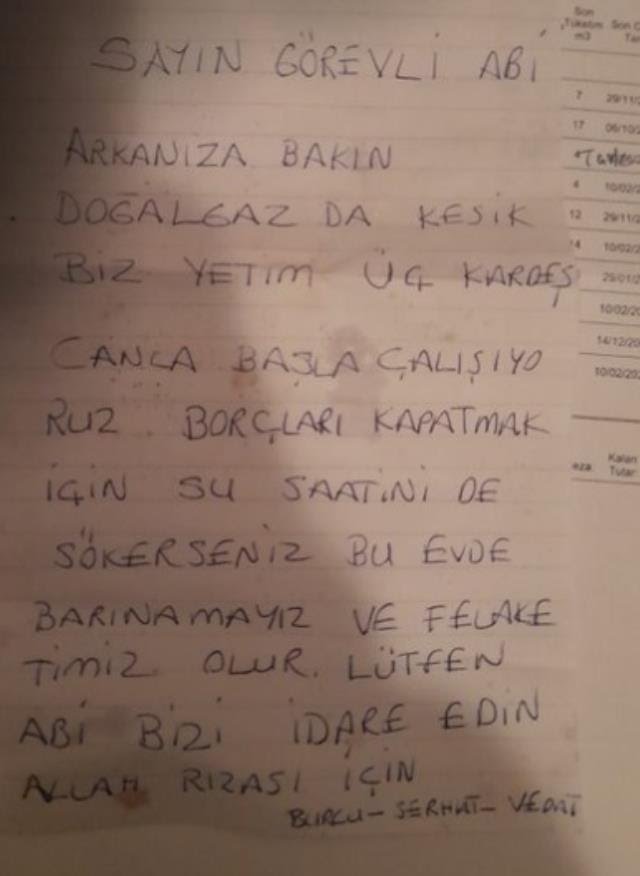 SAYIN GÖREVLİ ABİ
ARKANIZA BAKIN
DOĞALGAZ DA KESİK
BİZ YETİM ÜÇ KARDEŞ
CANLA BAŞLA ÇALIŞIYO
RUZ. BORÇLARI KAPATMAK
İÇİN SU SAATİNİ DE
SÖKERSENİZ BU EVDE
BARINAMAYIZ VE FELAKE
TİMİZ OLUR. LÜTFEN
ABİ BİZİ İDARE EDİN
ALLAH RIZASI İÇİN
BURCU - SERHAT - VEDAT
Son
Tüketim Son
m3
7 29/11/2
17 06/10/2
4 10/02/2
12 29/11/2
4 10/02/2
29/01/2
10/02/20
14/12/20
10/02/202
eza Kalan
Tutar